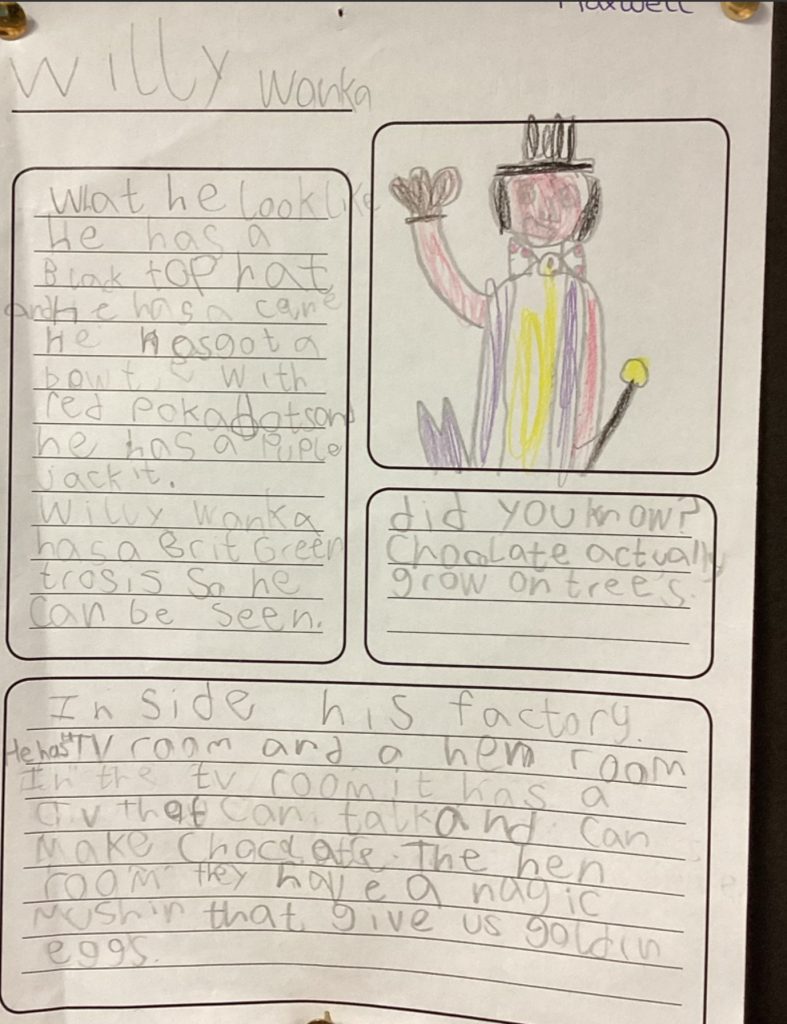 Maxwell
Willy Wanka
What he look like
He has a
Black top hat
and He has a cane
He hasgot a
bowtie with
red pokadotsand
he has a Puple
jackit.
Willy Wanka
has a Brit Green
trosis So he
Can be seen.
did you know?
Chocolate actually
grow on trees.
In side his factory.
He has TV room and a hen room
In the tv room it has a
T.v that can talk and can
Make Chocolate. The hen
room they have a magic
Mushin that give us goldin
eggs.